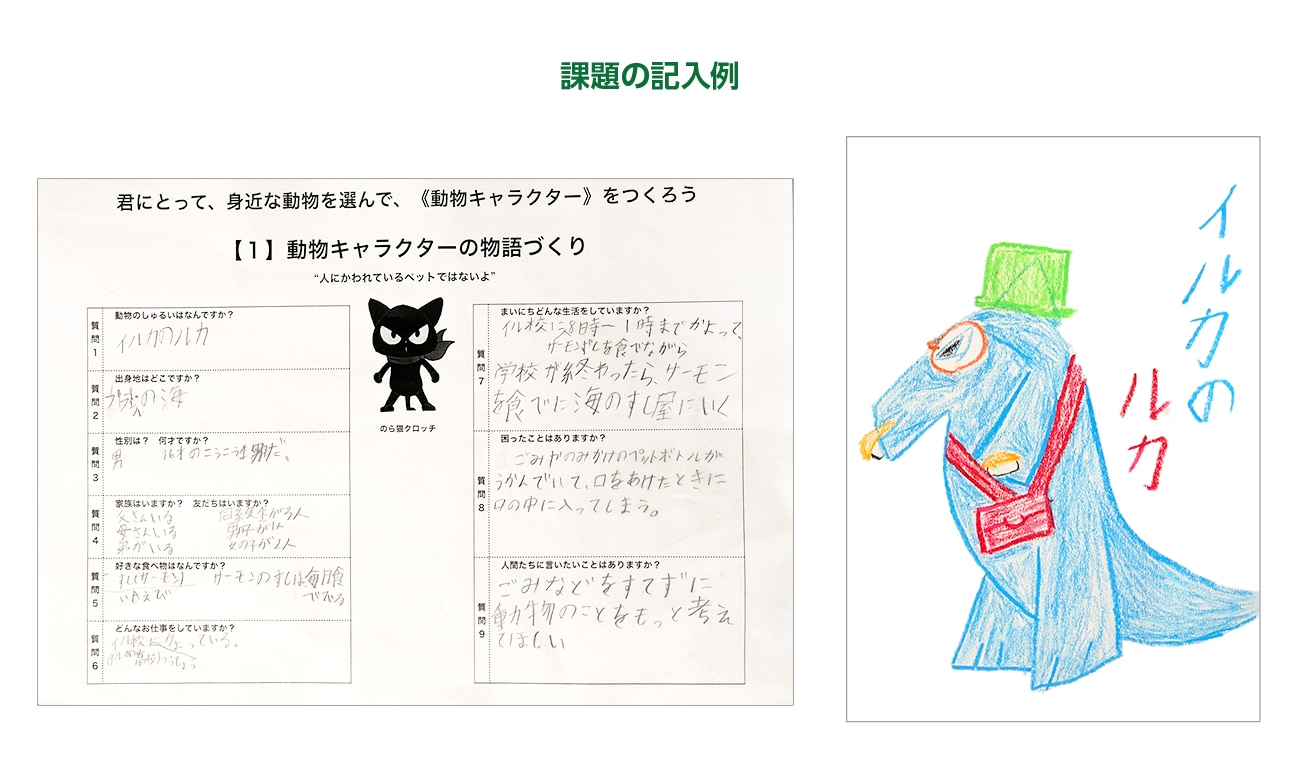 課題の記入例
君にとって、身近な動物を選んで、《動物キャラクター》をつくろう
【1】動物キャラクターの物語づくり
“人にかわれているペットではないよ”
質問1
動物のしゅるいはなんですか？
イルカのルカ
質問2
出身地はどこですか？
の海
質問3
性別は？ 何才ですか？
男 16才のこうこう生男だ。
質問4
家族はいますか？ 友だちはいますか？
父さんいる
母さんいる
弟がいる
同級生が3人
男子が1人
女の子が2人
質問5
好きな食べ物はなんですか？
すし(サーモン) サーモンのすしは毎日食
いせえび でてる
質問6
どんなお仕事をしていますか？
イル校にかよっている。
のら猫クロッチ
質問7
まいにちどんな生活をしていますか？
イル校に8時〜1時までかよって、
サーモンずしを食でながら
学校が終わったら、サーモン
を食でに海のすし屋にいく
質問8
困ったことはありますか？
ごみやのみかけのペットボトルが
うかんでいて、口をあけたときに
口の中に入ってしまう。
質問9
人間たちに言いたいことはありますか？
ごみなどをすてずに
動物のことをもっと考え
てほしい
イルカの
ルカ